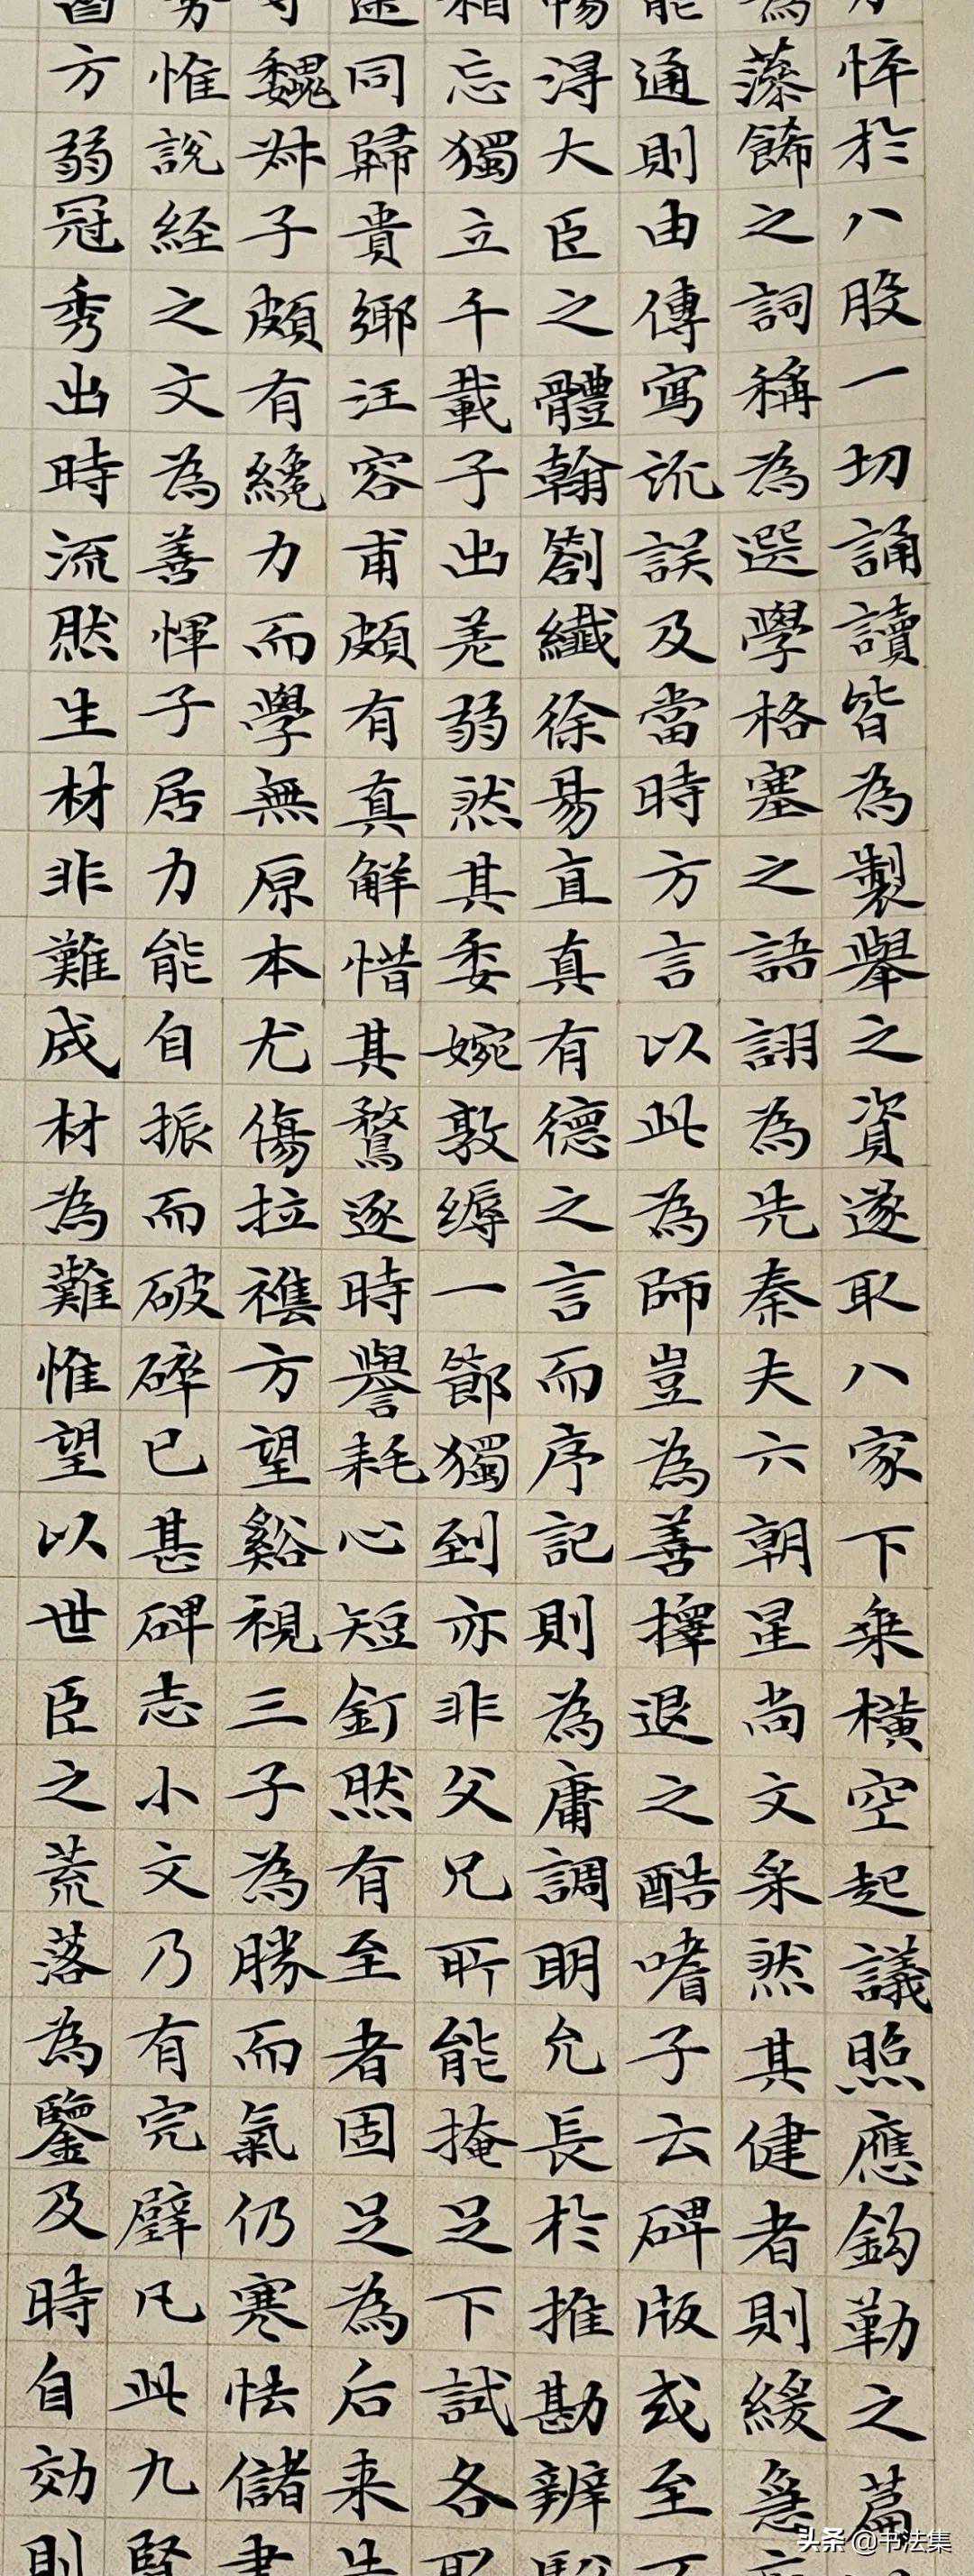 悴於八股一切誦讀皆為製舉之資遂取八家下乘橫空起議照應鉤勒之篇
藻飾之詞稱為選學格塞之語詡為先秦夫六朝星尚文采然其健者則緩急
能通則由傳寫訛誤及當時方言以此為師豈為善擇退之酷嗜子云碑版或至
暢得大臣之體翰劄纖徐易直真有德之言而序記則為庸調明允長於推勘辨
相忘獨立千載子出羌弱然其委婉敦縟一節獨到亦非父兄所能掩足下試各
途同歸貴鄉汪容甫頗有真解惜其騖逐時譽耗心短釘然有至者固足為后来
魏叔子頗有纔力而學無原本尤傷拉襍方望谿視三子為勝而氣仍寒怯儲
惟說經之文為善惲子居力能自振而破碎已甚碑志小文乃有完璧凡此九
方弱冠秀出時流然生材非難成材為難惟望以世臣之荒落為鑒及時自効
头条 @书法集